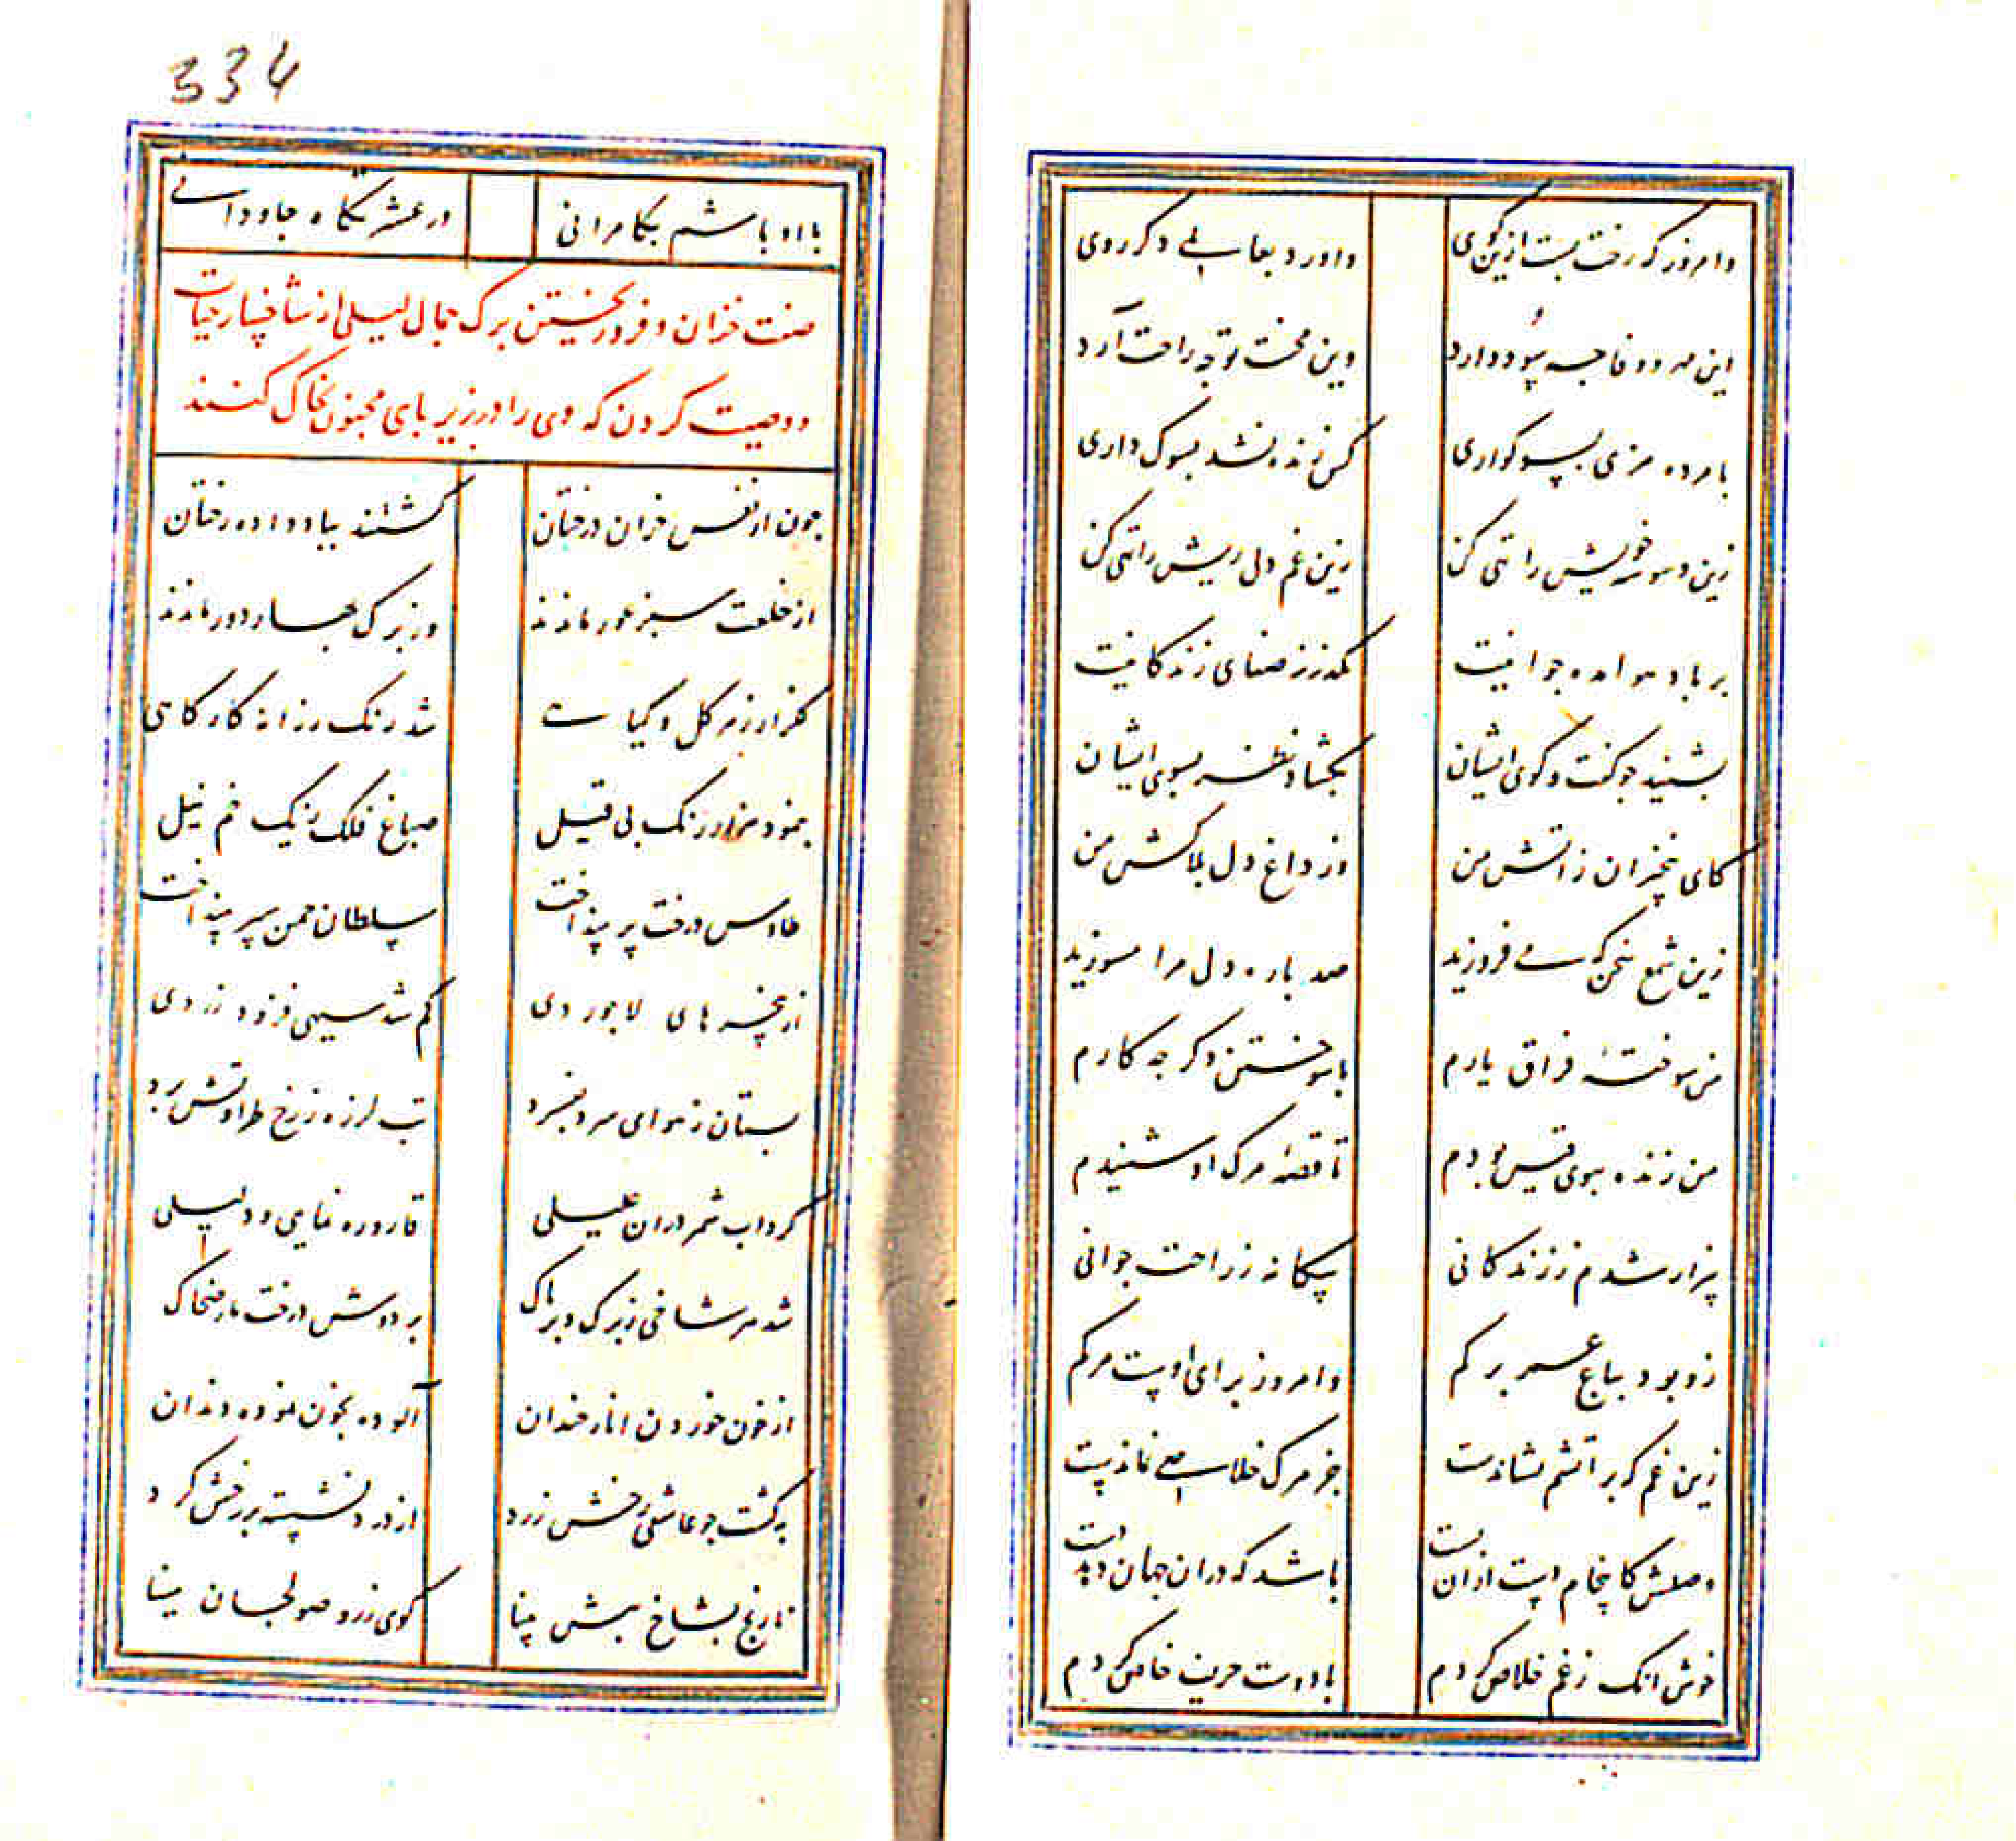 وامروز که رخت بست ازین کوی
واورد بعالمی دکر روی
این مهر و وفا چه سود دارد
وین محنت تو چه راحت آرد
با مرده مزی بسوکواری
کس زنده نشد بسوک داری
زین وسوسه خویش را تهی کن
زین غم دل ریش را تهی کن
بر باد مده جوانیت
مکدر ز صفای زندکانیت
بشنید چو کفت و کوی ایشان
بکشاد نظر بسوی ایشان
کای بیخبران ز اتش من
وز داغ دل بلاکش من
زین شمع سخن که می فروزید
صد باره دل مرا مسوزید
من سوختهٔ فراق یارم
با سوختن دکر چه کارم
من زنده ببوی قیس بودم
تا قصهٔ مرک او شنیدم
بیزار شدم ز زندکانی
بیکانه ز راحت جوانی
زو بود بباغ عمر برکم
وامروز برای اوست مرکم
زین غم که بر آتشم نشاندست
جز مرک خلاصیی نماندست
وصلش کاینجام دست ازان بست
باشد که دران جهان دهد دست
خوش انک ز غم خلاص کردم
با دوست حریف خاص کردم
334
با او باشم بکامرانی
در عشرتکاه جاودانی
صفت خزان و فرو ریختن برک جمال لیلی از شاخسار حیات
و وصیت کردن که وی را در زیر بای مجنون بخاک کنند
چون از نفس خزان درختان
کشتند بباد داده رختان
از خلعت سبز عور ماندند
وز برک بهار دور ماندند
کلزار ز هر کل و کیاهی
شد رنک رزانه کارکاهی
بنمود هزار رنک بی قیل
صباغ فلک ز یک خم نیل
طاوس درخت پر بینداخت
سلطان چمن سپر بینداخت
از پنجه های لاجوردی
کم شد سیهی فزود زردی
بستان ز هوای سرد بفسرد
تب لرزه ز رخ طراوتش برد
کرداب شمر دران علیلی
قاروره نمایی و دلیلی
شد هر شاخی ز برک و بر پاک
بر دوش درخت مار ضحاک
از خون خوردن انار خندان
آلوده بخون نموده دندان
به کشت چو عاشقی رخش زرد
از درد نشسته بر رخش کرد
نارنج بشاخ بیش بینا
کوی زر و صولجان مینا